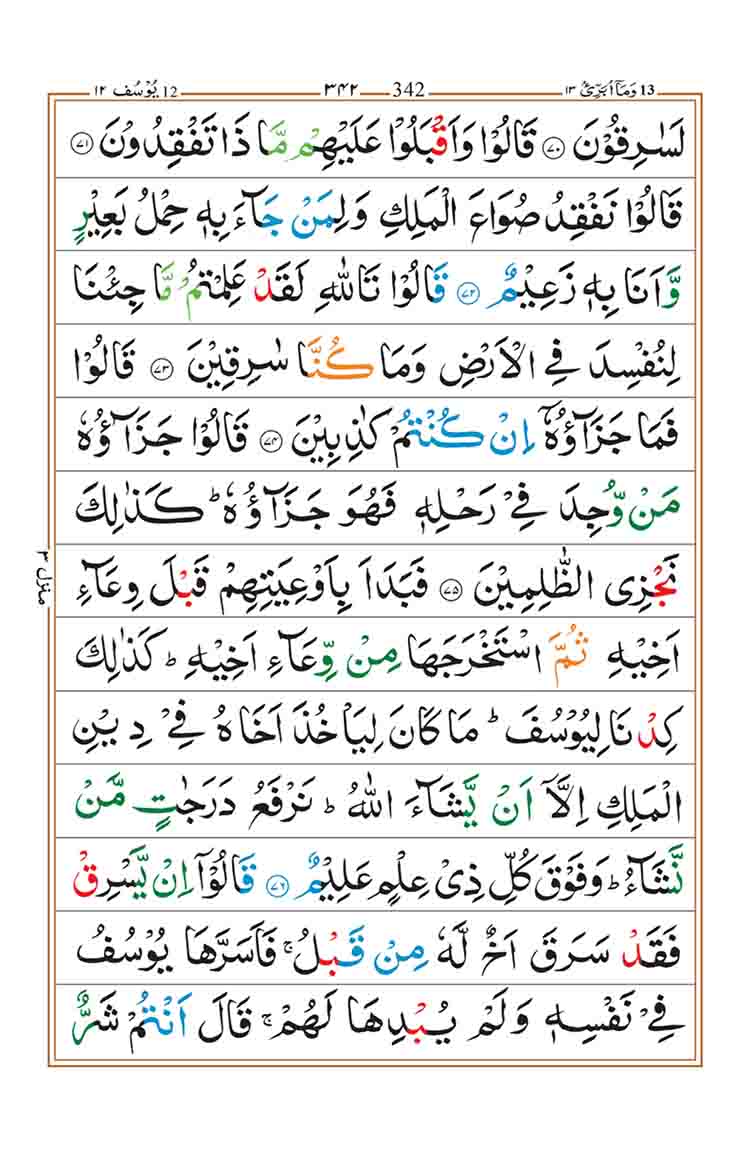 ١٢ يُوْسُف 12 ٣٤٢ 342 ١٣ وَمَاۤ اُبَرِّئُ 13
لَسٰرِقُوْنَ ۝٧٠ قَالُوْا وَاَقْبَلُوْا عَلَيْهِمْ مَّا ذَا تَفْقِدُوْنَ ۝٧١
قَالُوْا نَفْقِدُ صُوَاعَ الْمَلِكِ وَلِمَنْ جَآءَ بِهٖ حِمْلُ بَعِيْرٍ
وَّاَنَا بِهٖ زَعِيْمٌ ۝٧٢ قَالُوْا تَاللّٰهِ لَقَدْ عَلِمْتُمْ مَّا جِئْنَا
لِنُفْسِدَ فِي الْاَرْضِ وَمَا كُنَّا سٰرِقِيْنَ ۝٧٣ قَالُوْا
فَمَا جَزَآؤُهٗۤ اِنْ كُنْتُمْ كٰذِبِيْنَ ۝٧٤ قَالُوْا جَزَآؤُهٗ
مَنْ وُّجِدَ فِيْ رَحْلِهٖ فَهُوَ جَزَآؤُهٗ ؕ كَذٰلِكَ
نَجْزِى الظّٰلِمِيْنَ ۝٧٥ فَبَدَاَ بِاَوْعِيَتِهِمْ قَبْلَ وِعَآءِ
اَخِيْهِ ثُمَّ اسْتَخْرَجَهَا مِنْ وِّعَآءِ اَخِيْهِ ؕ كَذٰلِكَ
كِدْنَا لِيُوْسُفَ ؕ مَا كَانَ لِيَاْخُذَ اَخَاهُ فِيْ دِيْنِ
الْمَلِكِ اِلَّاۤ اَنْ يَّشَآءَ اللّٰهُ ؕ نَرْفَعُ دَرَجٰتٍ مَّنْ
نَّشَآءُ ؕ وَفَوْقَ كُلِّ ذِيْ عِلْمٍ عَلِيْمٌ ۝٧٦ قَالُوْۤا اِنْ يَّسْرِقْ
فَقَدْ سَرَقَ اَخٌ لَّهٗ مِنْ قَبْلُ ۚ فَاَسَرَّهَا يُوْسُفُ
فِيْ نَفْسِهٖ وَلَمْ يُبْدِهَا لَهُمْ ۚ قَالَ اَنْتُمْ شَرٌّ
منزل ٣